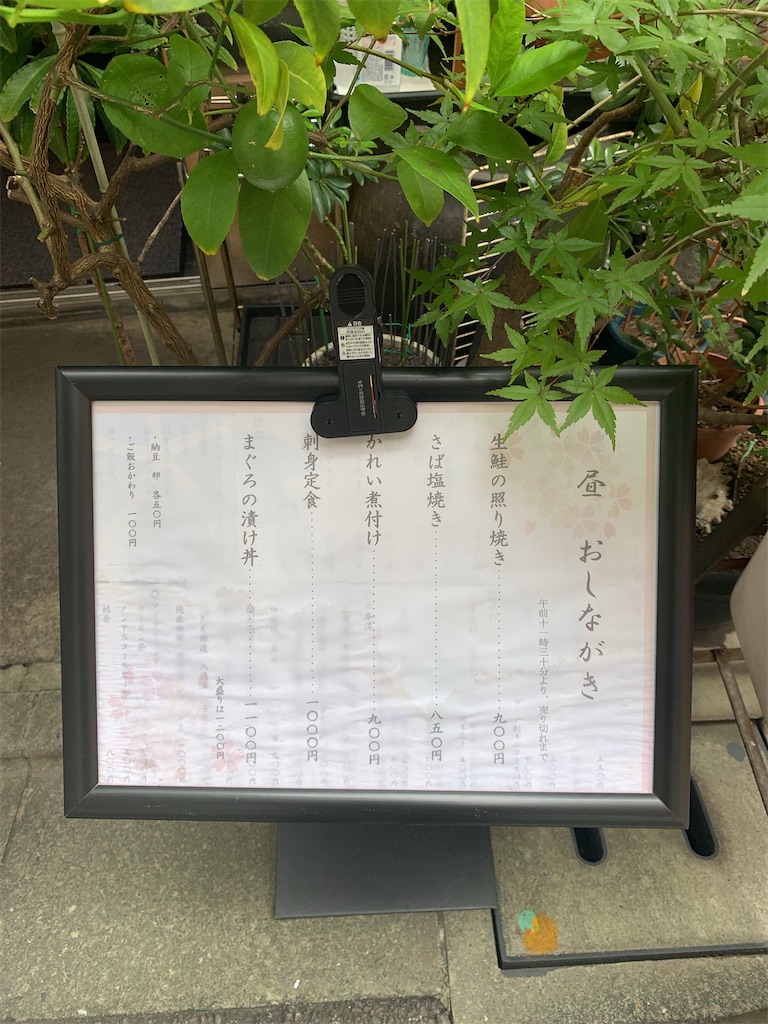 昼 おしながき
午前十一時三十分より、売り切れまで
生鮭の照り焼き・・・・・・・・・・九〇〇円
さば塩焼き・・・・・・・・・・八五〇円
かれい煮付け・・・・・・・・・・九〇〇円
刺身定食・・・・・・・・・・一〇〇〇円
まぐろの漬け丼・・・・・・・・・・一一〇〇円
大盛りは一二〇〇円
・納豆 卵 各五〇円
・ご飯おかわり 一〇〇円